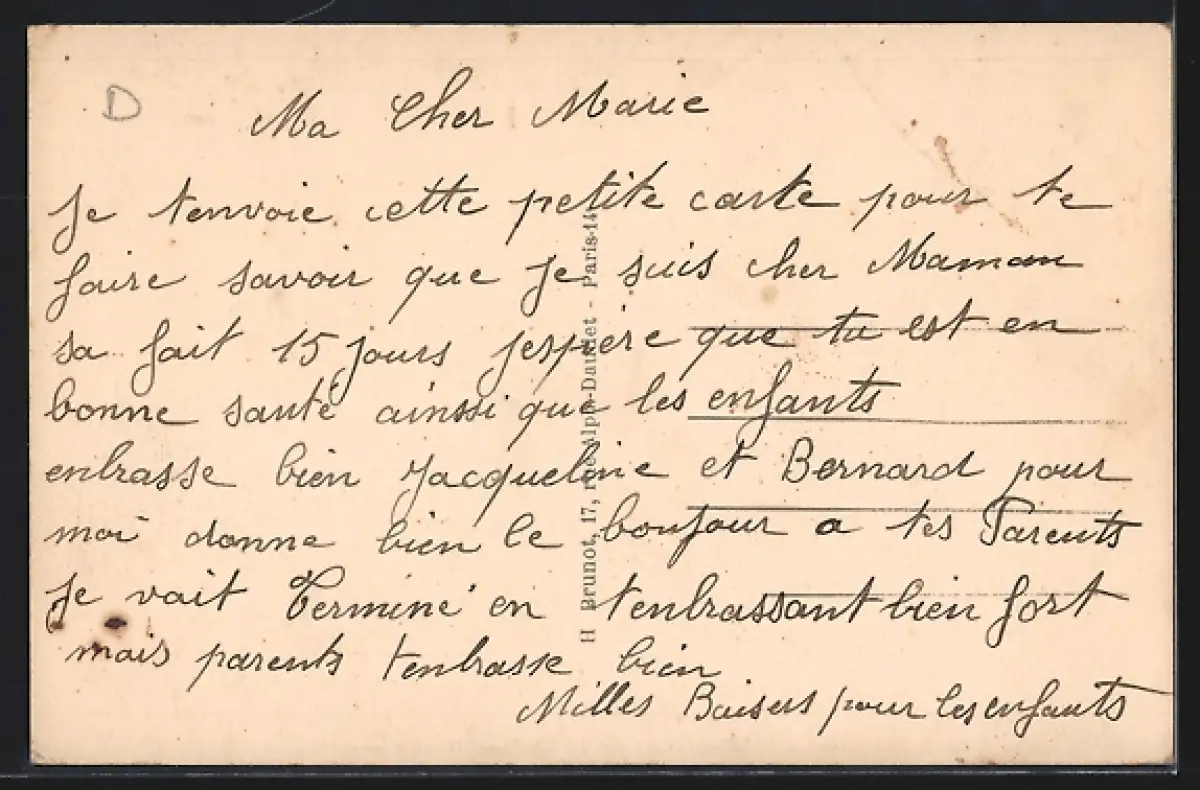 D
Ma Cher Marie
Je t'envoie cette petite carte pour te
faire savoir que je suis cher Maman
sa fait 15 jours jespère que tu est en
bonne santé ainssi que les enfants
enbrasse bien Jacqueline et Bernard pour
moi donne bien le bonjour a tes Parents
Je vait Terminé en tenbrassant bien fort
mais parents tenbrasse bien
Milles Baisers pour les enfants
H Brunot, 17, rue Alph-Daudet - Paris-14